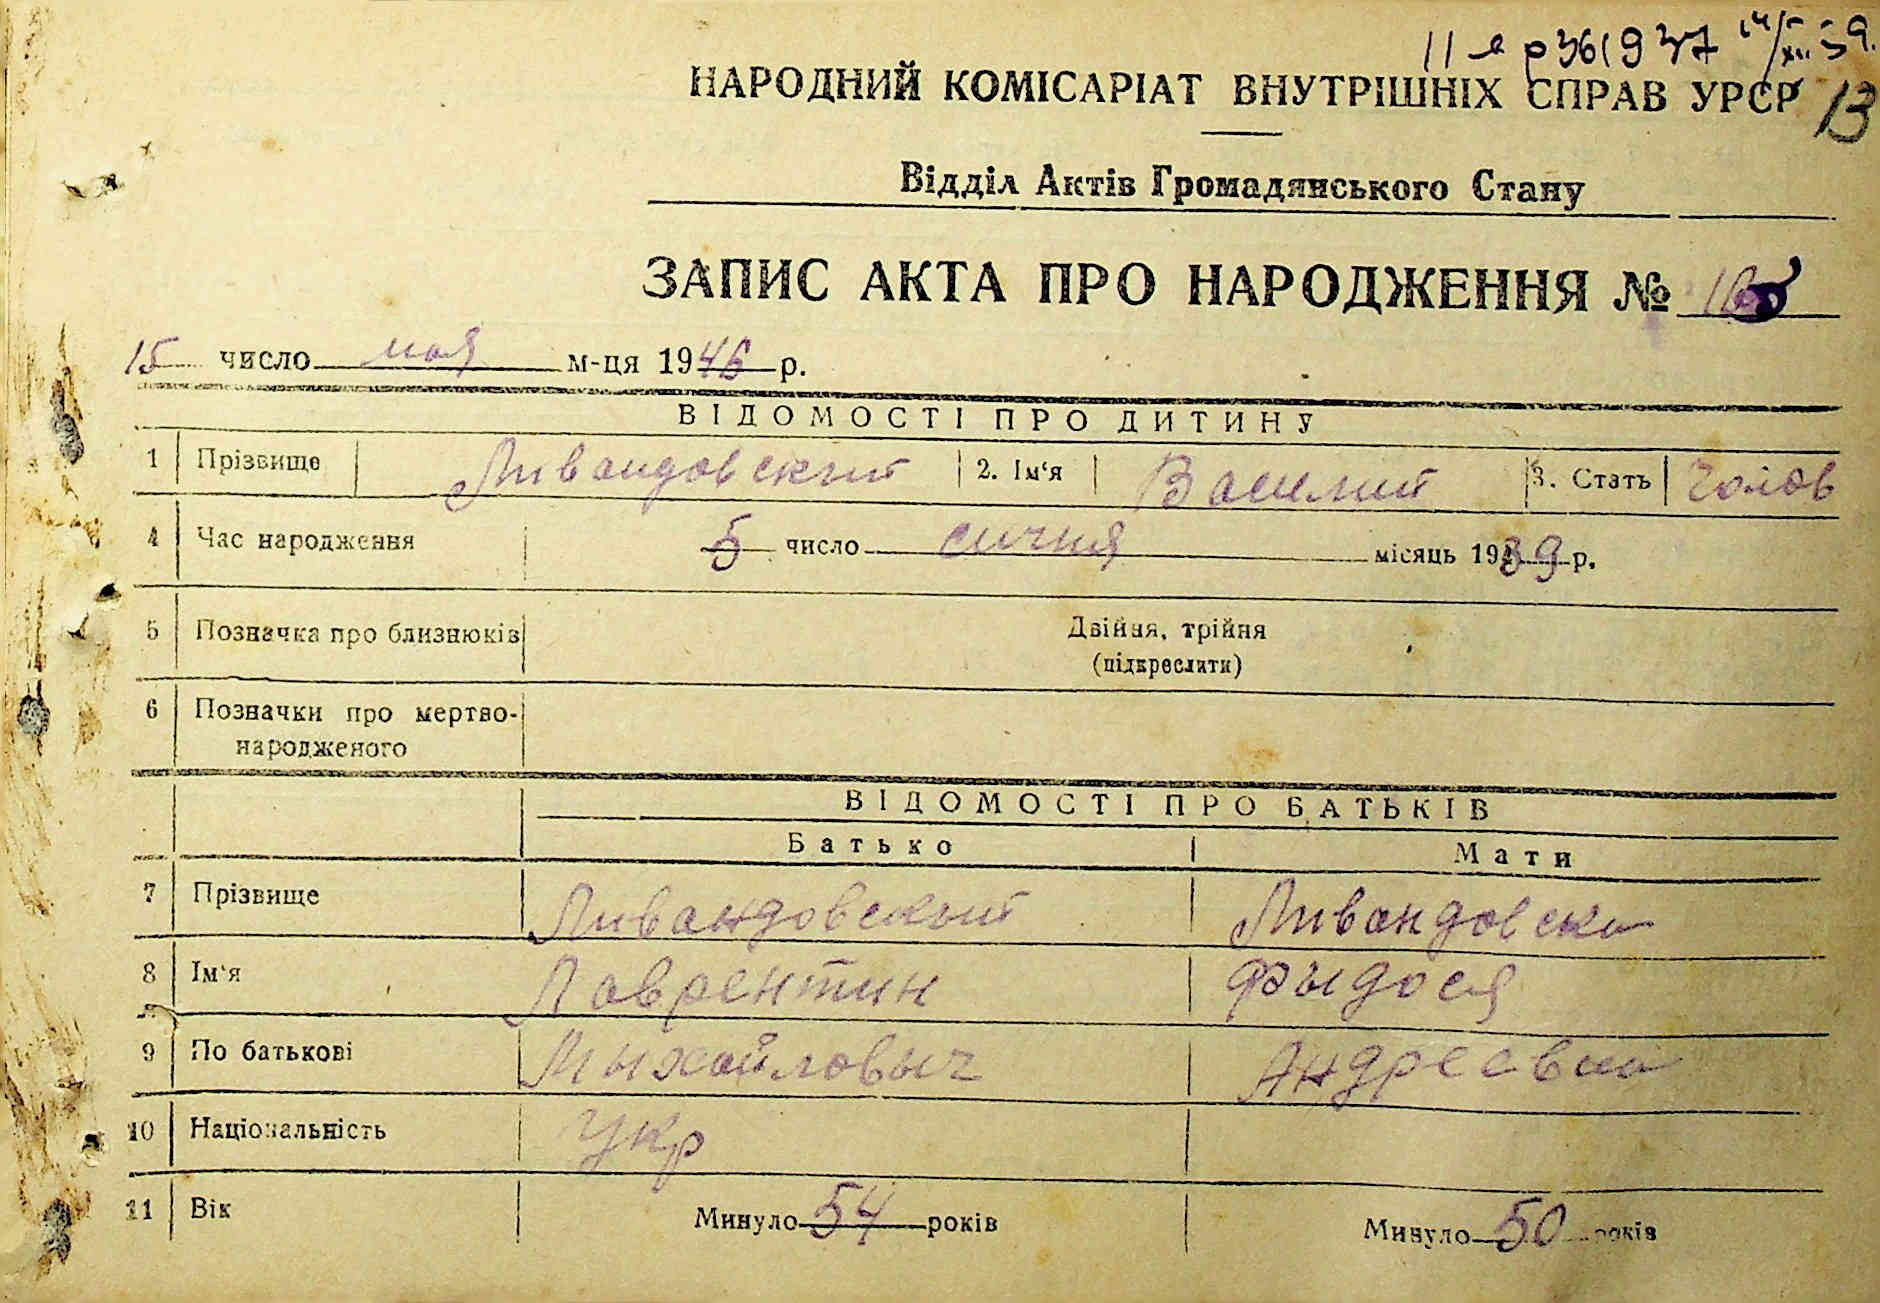 13
НАРОДНИЙ КОМІСАРІАТ ВНУТРІШНІХ СПРАВ УРСР
Відділ Актів Громадянського Стану
ЗАПИС АКТА ПРО НАРОДЖЕННЯ №
15 число мая м-ця 1946 р.
ВІДОМОСТІ ПРО ДИТИНУ
1 Прізвище Ливандовский 2. Ім‘я Василий 3. Стать чолов
4 Час народження 5 число сичня місяць 1939 р.
5 Позначка про близнюків Двійня, трійня
(підкреслити)
6 Позначки про мертво-
народженого
ВІДОМОСТІ ПРО БАТЬКІВ
Батько Мати
7 Прізвище Ливандовский Ливандовска
8 Ім‘я Лаврентин Фыдося
9 По батькові Мыхайловыч Андреевна
10 Національність Укр
11 Вік Минуло 54 років Минуло 50 років